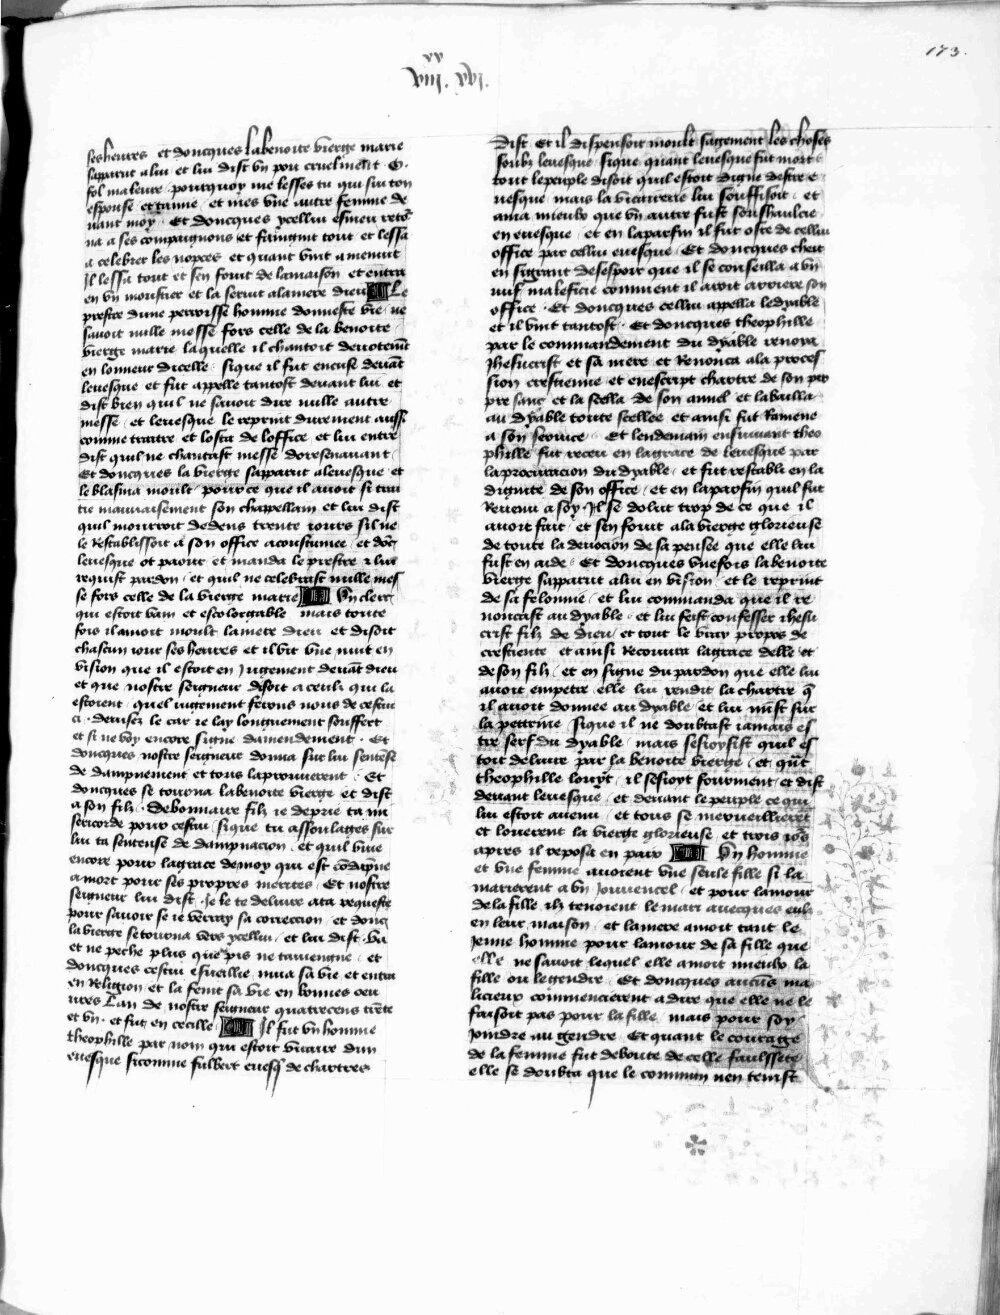 173.
viii. xvi.
ses heures et doncques la benoite vierge marie
sapparut a lui et lui dist vn pou cruelment. O.
fol maleure pourquoy me lesses tu qui sui ton
espouse et tamie et mes vne autre femme de
uant moy. Et doncques ycellui esmeu retor
na a ses compaignons et faingnit tout et lessa
a celebrer les nopces et quant vint a mienuit
Il lessa tout et sen fouit de la maison et entra
en vn moustier et la seruit a la mere dieu Le
prestre dune perroisse homme donneste vie ne
sauoit nulle messe fors celle de la benoite
vierge marie laquelle il chantoit deuotement
en lonneur dicelle Sique il fut encuse deuant
leuesque et fut appelle tantost deuant lui et
dist bien quil ne sauoit dire nulle autre
messe et leuesque le reprint durement aussi
comme traitre et losta de loffice et lui entre
dist quil ne chantast messe doresenauant
Et doncques la vierge sapparut a leuesque et
le blasma moult pource que il auoit si trai
tie mauuaisement son chappellain et lui dist
quil mourroit dedens trente iours sil ne
le restablissoit a son office acoustumee et donc
leuesque ot paour et manda le prestre et lui
requist pardon et quil ne celebrast nulle mes
se fors celle de la vierge marie Vn clerc
qui estoit vain et escolorgable mais toute
fois il amoit moult la mere dieu et disoit
chascun iour ses heures et il vit vne nuit en
vision que il estoit en Jugement deuant dieu
et que nostre seigneur disoit a ceuls qui la
estoient quel iugement ferons nous de cestui
ci. deuisez le car ie lay longuement souffert
et si ne voy encore signe damendement. Et
doncques nostre seigneur donna sur lui sentense
de dampnement et tous laprouuerent. Et
doncques se tourna la benoite vierge et dist
a son filz. debonnaire filz ie deprie ta mi
sericorde pour cestui sique tu assoulages sur
lui ta sentense de dampnacion et quil viue
encore pour la grace de moy qui est condapne
a mort pour ses propres merites Et nostre
seigneur lui dist. Je le te deliure a ta requeste
pour sauoir se ie verray sa correccion et donc
la vierge se tourna vers ycellui et lui dist. va
et ne peche plus que pis ne tauiengne et
doncques cestui esueillie mua sa vie et entra
en Religion et la fenit sa vie en bonnes oeu
ures Lan de nostre seigneur quatrecens trente
et vn. et fut en cecille Il fut vn homme
theophille par nom qui estoit vicaire dun
euesque sicomme fulbert euesque de chartres
Dist Et il dispensoit moult sagement les choses
soubz leuesque sique quant leuesque fut mort
tout le peuple disoit quil estoit digne destre e
uesque mais la vicairerie lui souffisoit et
ama mieulx que vn autre fust soushaulcie
en euesque et en la parfin il fut oste de cellui
office par cellui euesque Et doncques cheit
en si grant desespoir que il se conseilla a vn
iuif maleficie comment il auroit arriere son
office. Et doncques cellui appella le dyable
et il vint tantost. Et doncques theophille
par le commandement du dyable renoya
Jhesucrist et sa mere et Renonca a la proces
sion crestienne et en escript chartre de son pro
pre sanc et la seella de son annel et la bailla
au dyable toute seellee et ainsi fut Ramene
a son seruice Et lendemain ensuiuant theo
phille fut receu en la grace de leuesque par
la procuracion du dyable et fut restabli en la
dignite de son office et en la parfin quil fut
Reuenu a soy Il se dolut trop de ce que il
auoit fait et sen fouit a la vierge glorieuse
de toute la deuocion de sa pensee que elle lui
fust en aide Et doncques vne fois la benoite
vierge sapparut a lui en vision et le reprint
de sa felonnie et lui commanda que il re
noncast au dyable et lui feist confesser ihesu
crist filz de dieu et tout le vray propos de
crestiente et ainsi Recouura la grace delle et
de son filz et en signe du pardon que elle lui
auoit empetre elle lui rendit la chartre que
il auoit donnee au dyable et lui mist sur
la pettrine sique il ne doubtast iamais es
tre serf du dyable mais sesioysist quil es
toit deliure par la benoite vierge et quant
theophille louyt il sesioyt forment et dist
deuant leuesque et deuant le peuple ce qui
lui estoit auenu et tous se merueillierent
et louerent la vierge glorieuse et trois iours
apres il reposa en paix Vn homme
et vne femme auoient vne seule fille si la
marierent a vn Jouuencel et pour lamour
de la fille ilz tenoient le mari auecques eulx
en leur maison et la mere amoit tant le
Jenne homme pour lamour de sa fille que
elle ne sauoit lequel elle amoit mieulx la
fille ou le gendre Et doncques aucuns ma
licieux commencierent a dire que elle ne le
faisoit pas pour la fille mais pour soy
Joindre au gendre Et quant le courage
de la femme fut deboute de celle faulssete
elle se doubta que le commun nen tenist